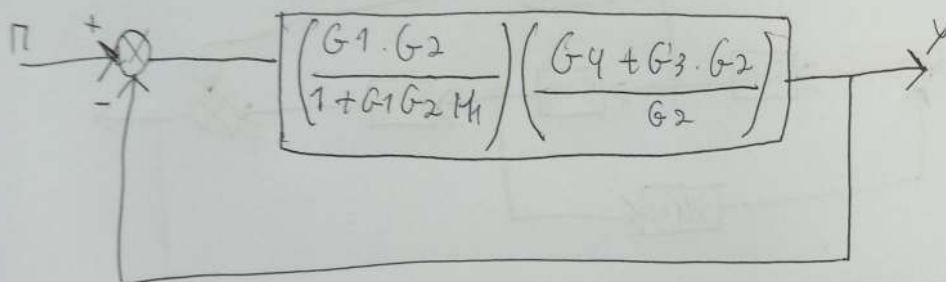 Π + - (G1 · G2 / 1 + G1 G2 H1) (G4 + G3 · G2 / G2) Y